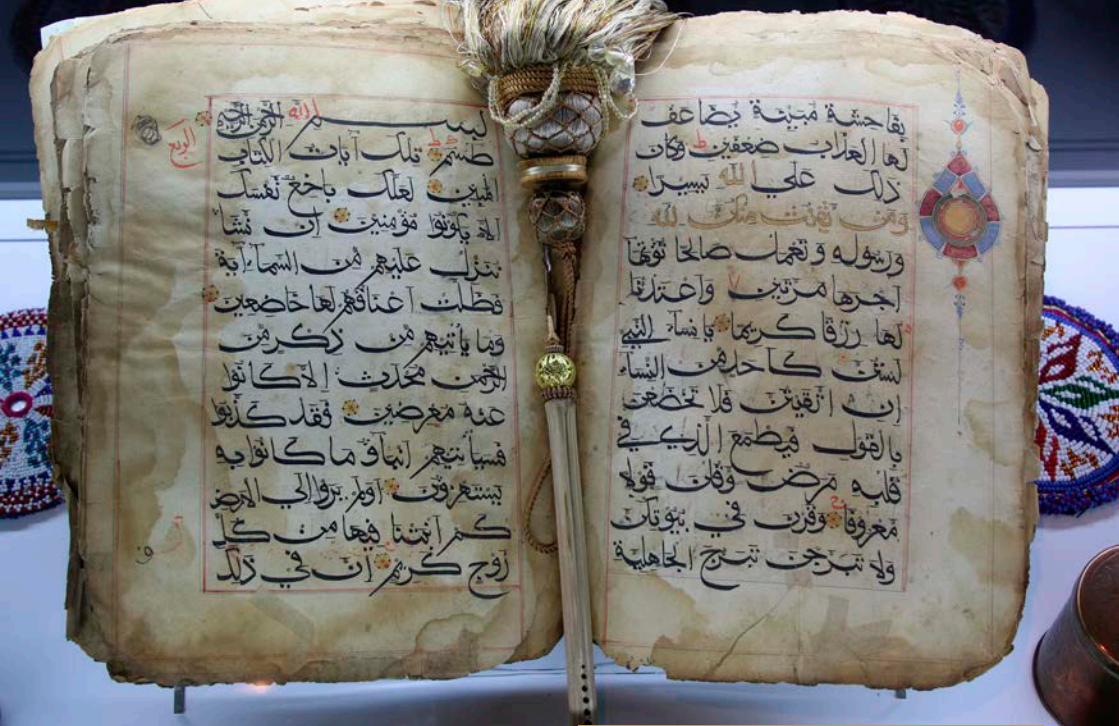 بفاحشة مبينة يضاعف
لها العذاب ضعفين وكان
ذلك على الله يسيرا
ومن يقنت منكن لله
ورسوله وتعمل صالحا نؤتها
اجرها مرتين واعتدنا
لها رزقا كريما يا نساء النبي
لستن كاحد من النساء
ان اتقيتن فلا تخضعن
بالقول فيطمع الذي في
قلبه مرض وقلن قولا
معروفا وقرن في بيوتكن
ولا تبرجن تبرج الجاهلية
بسم الله الرحمن الرحيم
الربع
طسم تلك آيات الكتاب
المبين لعلك باخع نفسك
الا يكونوا مؤمنين ان نشا
ننزل عليهم من السماء آية
فظلت اعناقهم لها خاضعين
وما ياتيهم من ذكر من
الرحمن محدث الا كانوا
عنه معرضين فقد كذبوا
فسياتيهم انباؤ ما كانوا به
يستهزؤن اولم يروا الى الارض
كم انبتنا فيها من كل
زوج كريم ان في ذلك